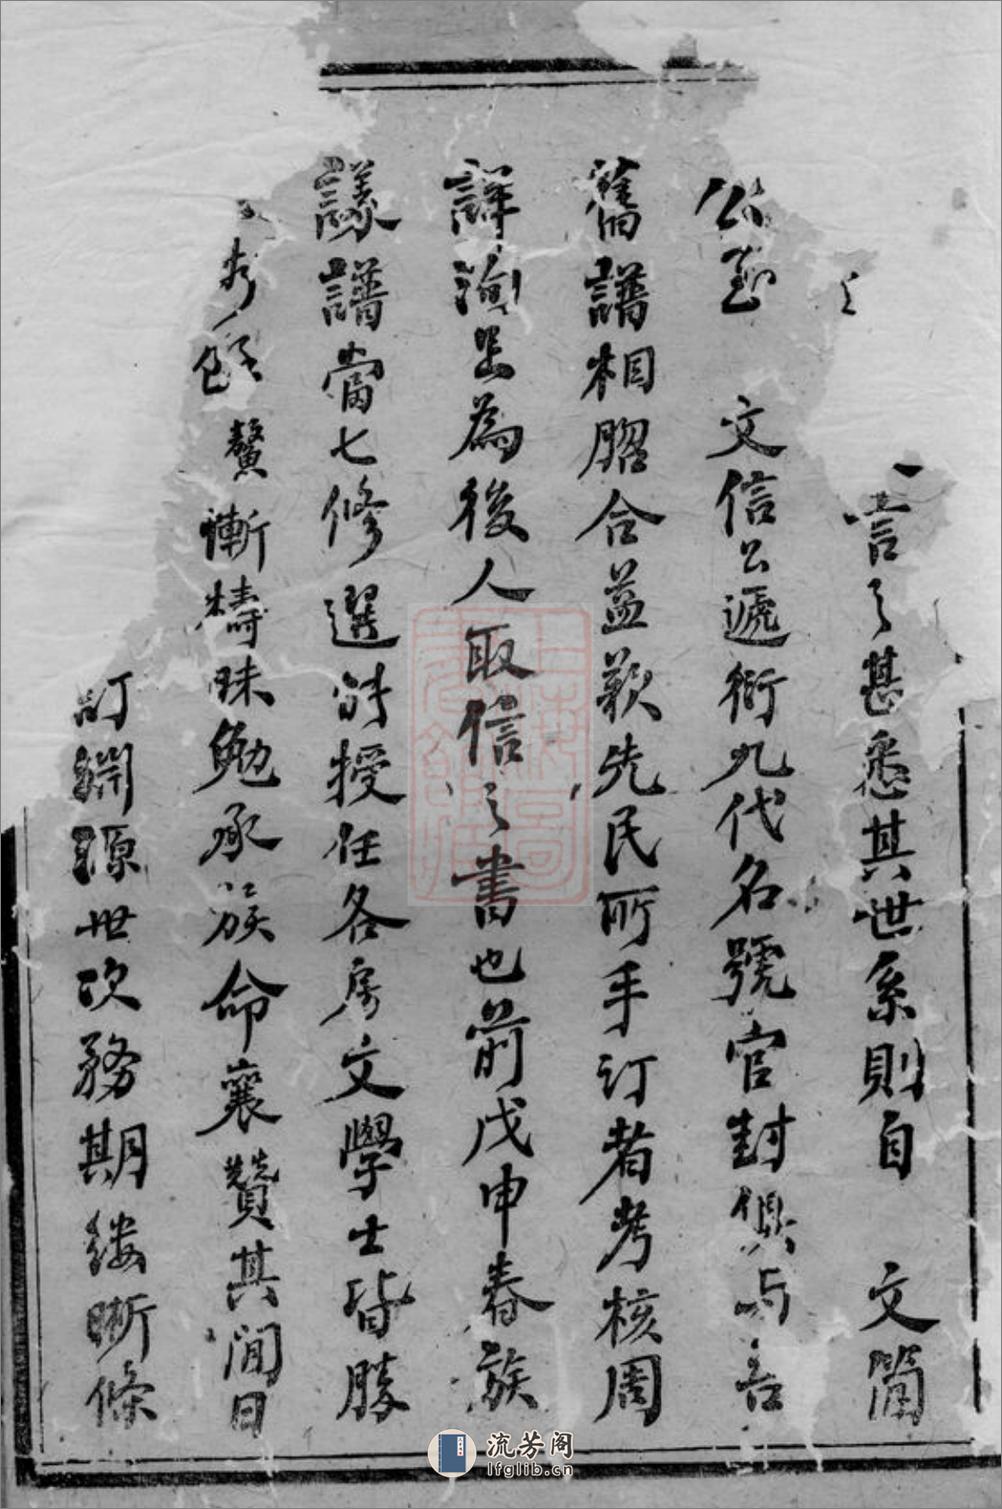 之
言之甚悉其世系則自 文簡
公至 文信公遞衍九代名號官封俱与吾
舊譜相脗合益歎先民所手訂者考核周
詳洵足為後人取信之書也前戊申春族
議譜當七修選材授任各房文學士皆勝
慚檮昧勉承族命襄贊其間日
訂淵源世次務期縷晰條
流芳阁
lfglib.cn